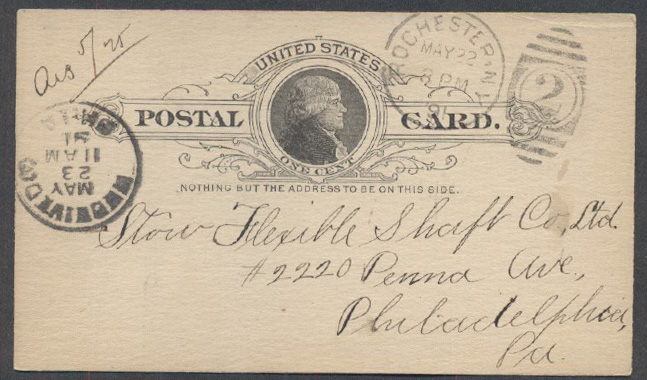 Ans 5/25
UNITED STATES
POSTAL CARD.
ONE CENT
NOTHING BUT THE ADDRESS TO BE ON THIS SIDE.
ROCHESTER, N.Y.
MAY 22
8 PM
91
2
RECEIVED
MAY
23
11 AM
91
PHILA
Stow Flexible Shaft Co, Ltd.
#2220 Penna Ave,
Philadelphia,
Pa.